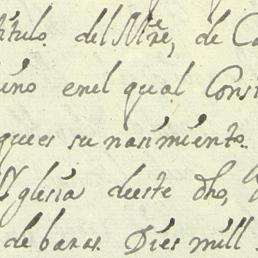 título del Mre, de Ca
ino enel qual Cons
quees su nasimiento.
Yglesia deeste dho,
de baras. Dies mill